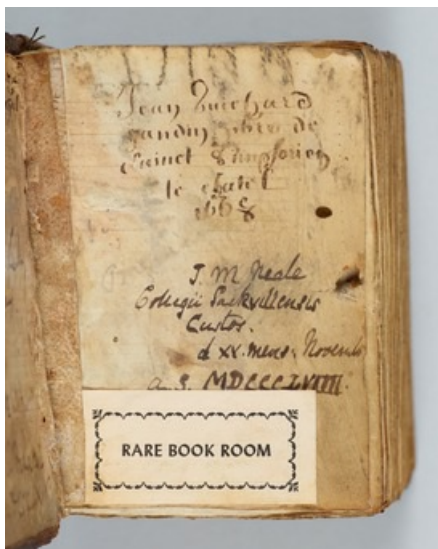 Jean Guichard
de
Sainct Simphorien
le chatel
1668
J. M. Neale
Collegii Sackvillensis
Custos.
d XX. mens. Novemb
a. S. MDCCCLVIIII.
RARE BOOK ROOM